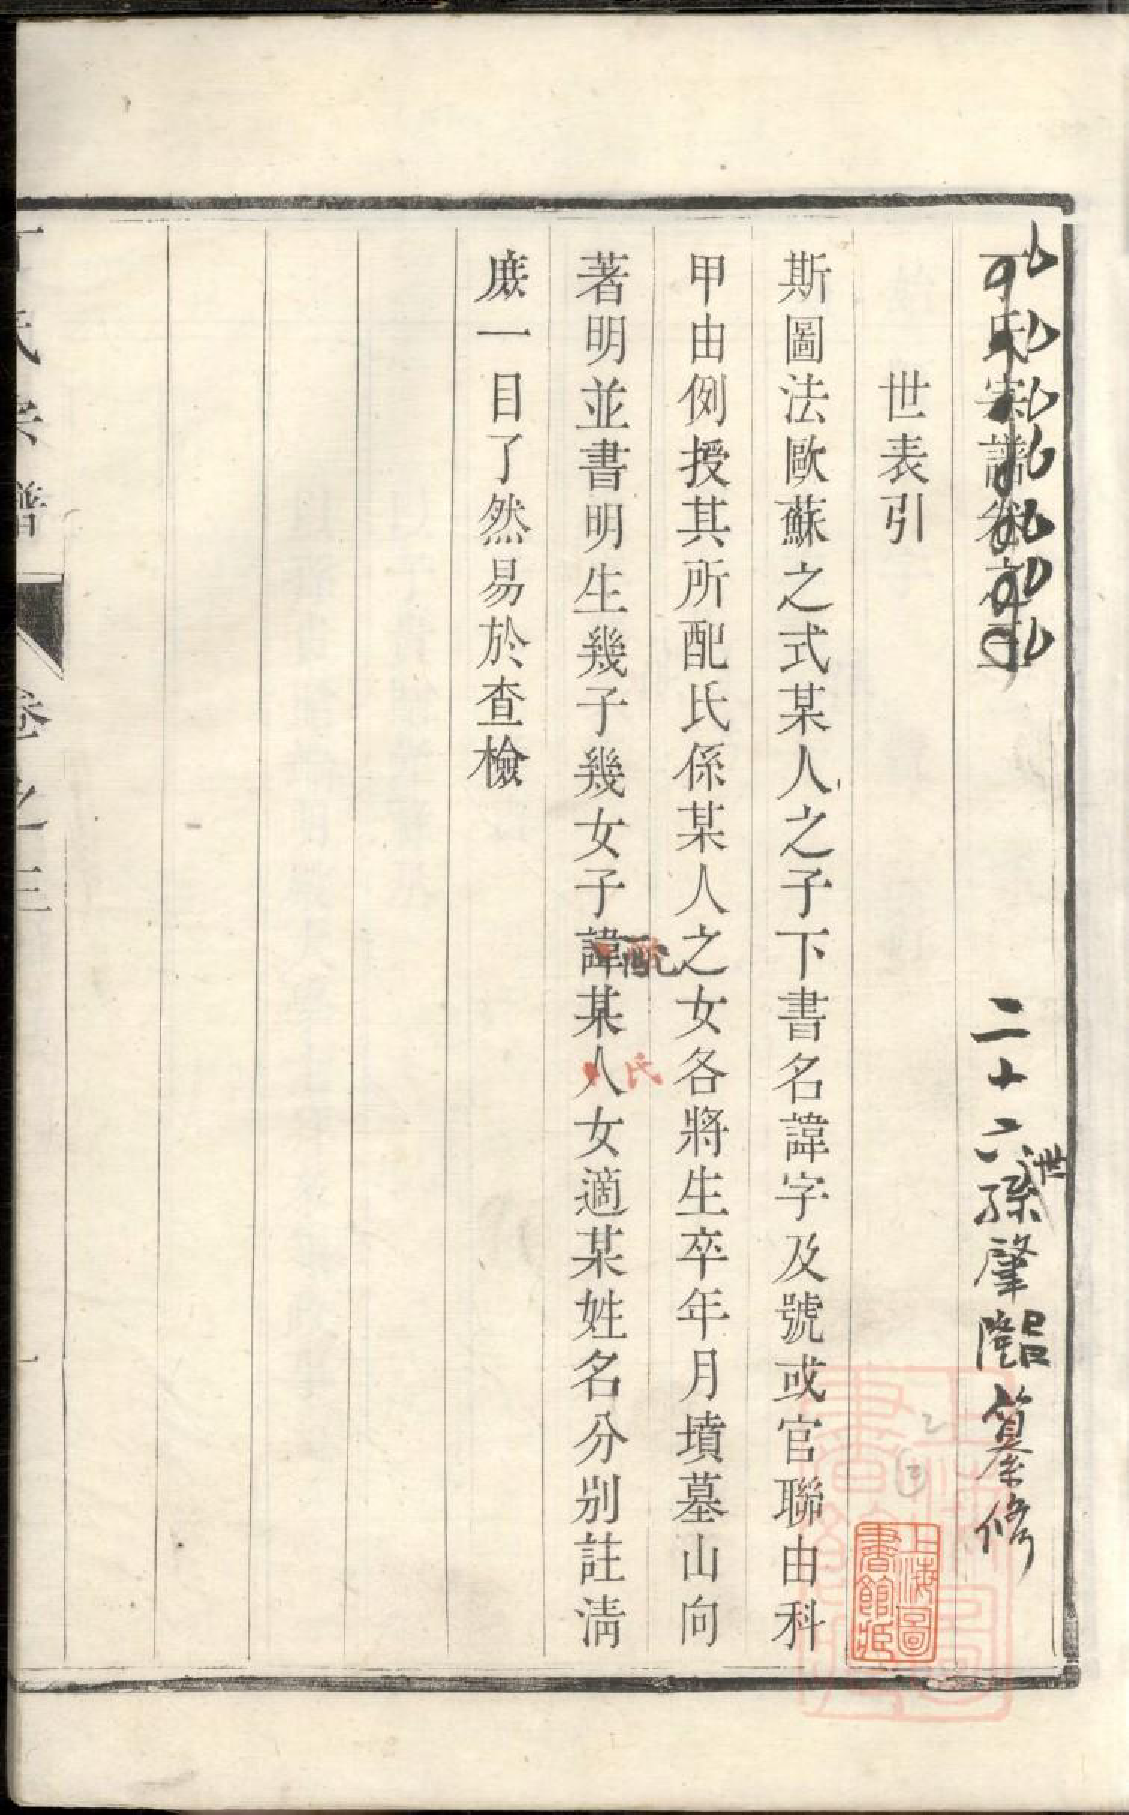 丁氏宗譜卷之三
二十六世孫肇 纂修
世表引
斯圖法歐蘇之式某人之子下書名諱字及號或官聯由科
甲由例授其所配氏係某人之女各將生卒年月墳墓山向
著明並書明生幾子幾女子諱某人女適某姓名分別註淸
配
配
氏
庶一目了然易於查檢
氏宗譜
卷之三
一
上海圖書館藏